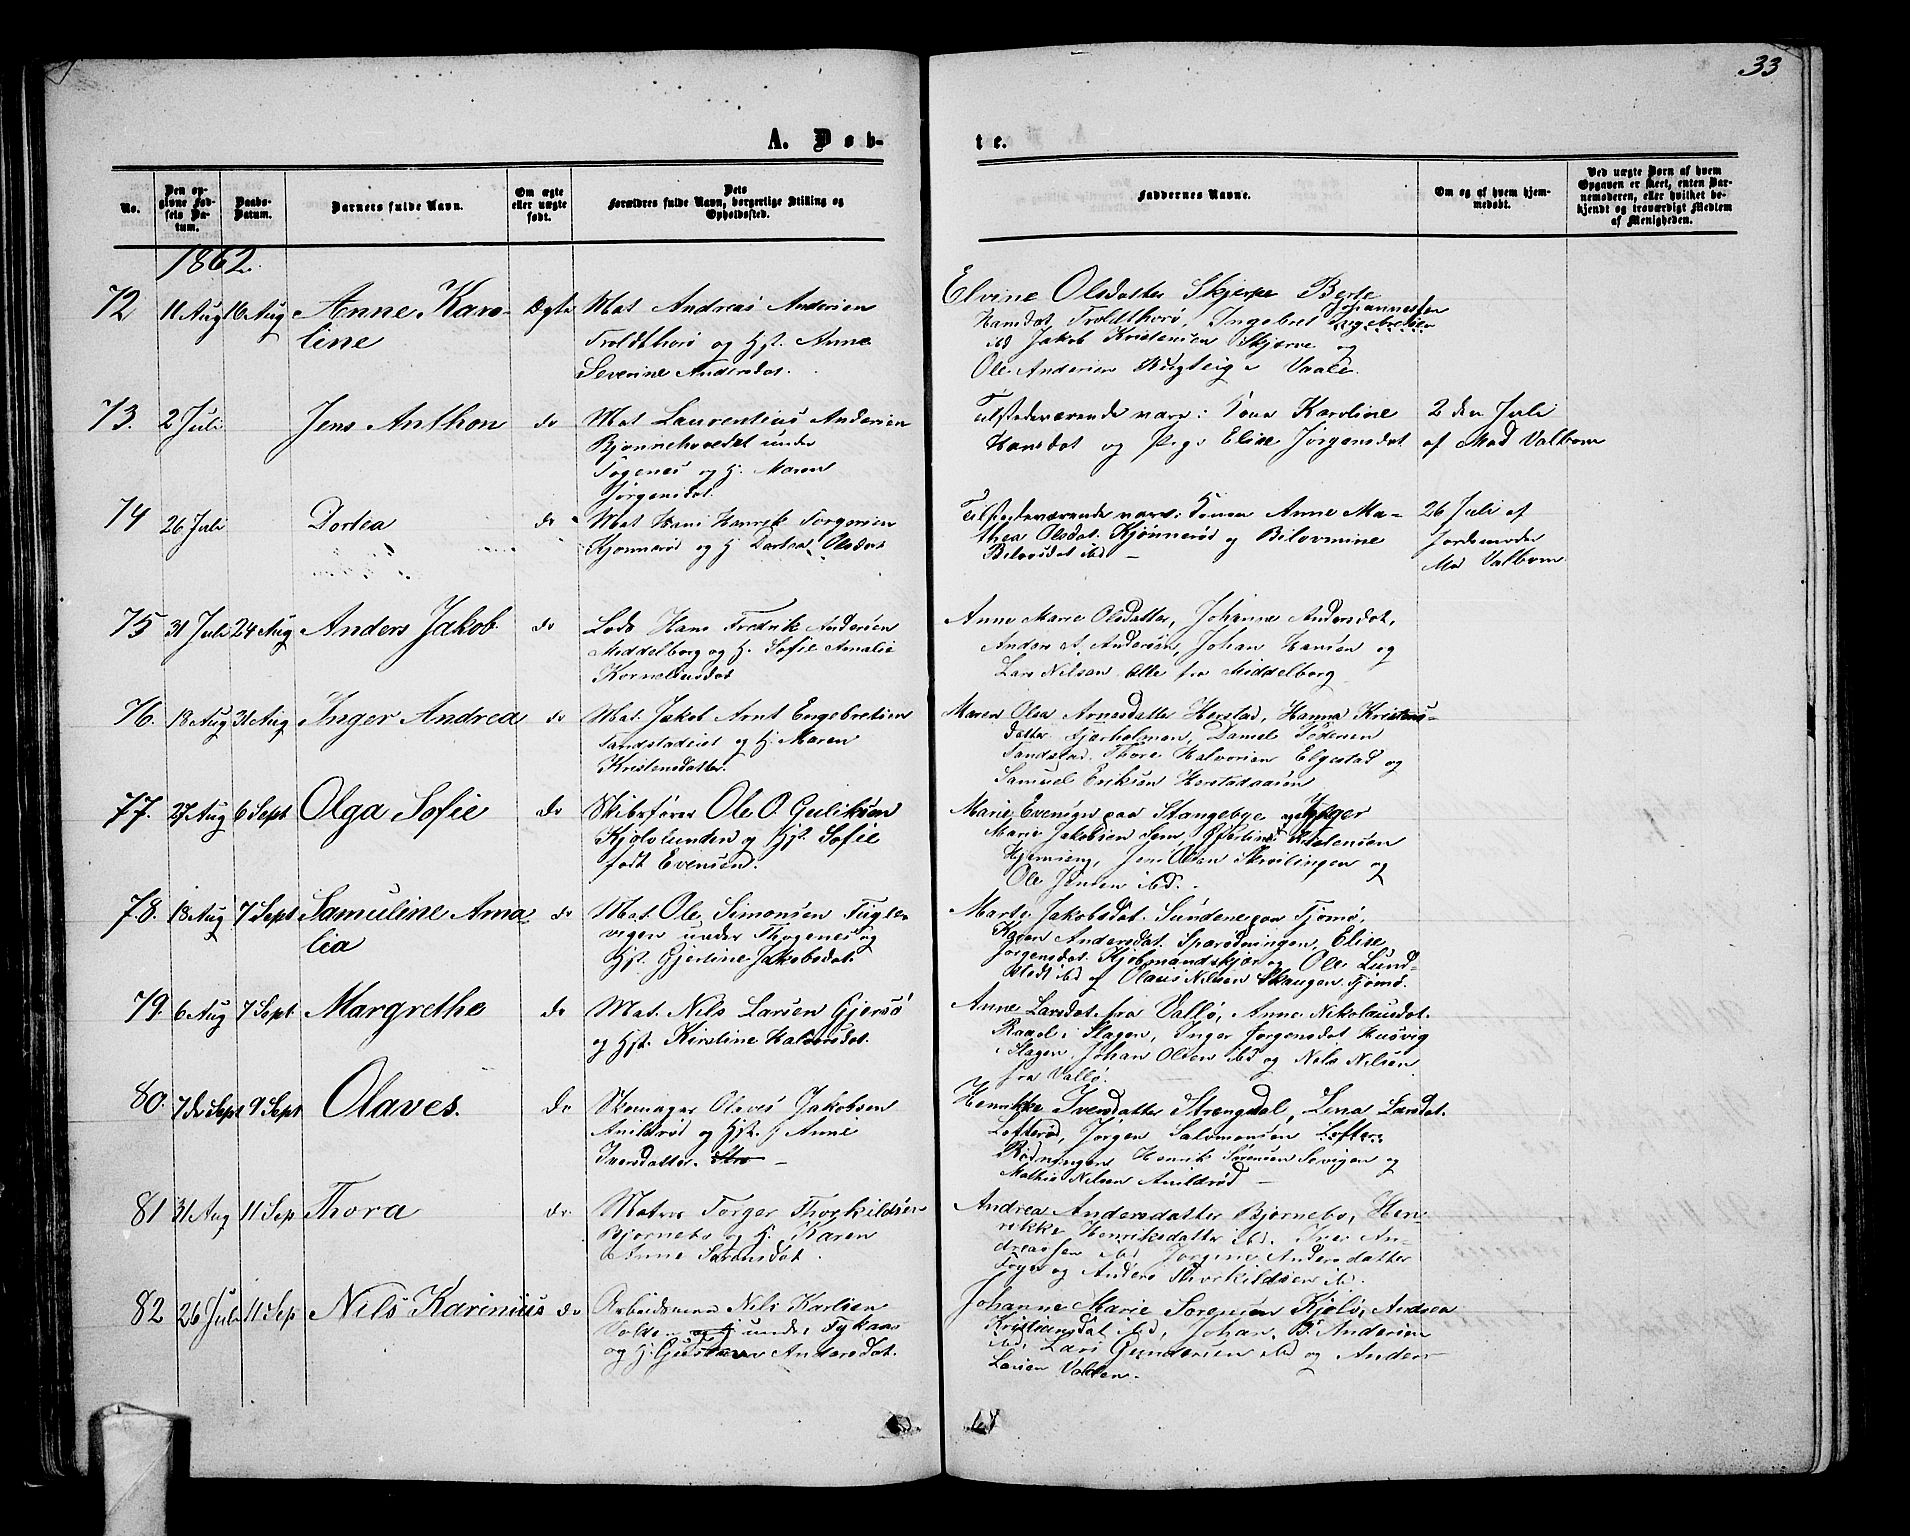 33
A. Døb-
te.
No.
Den op-
givne Fød-
sels Da-
tum.
Daabs-
Datum.
Barnets fulde Navn.
Om ægte
eller uægte
født.
Dets
Forældres fulde Navn, borgerlige Stilling og
Opholdssted.
Faddernes Navne.
Om og af hvem hjem-
medøbt.
Ved uægte Børn af hvem
Opgaven er skeet, enten Bar-
nemoderen, eller hvilket be-
kjendt og troværdigt Medlem
af Menigheden.
1862.
72 11 Aug 16 Aug Anne Karo-
line
Ægte
Mat Andreas Andersen
og Hst. Anne
Severine Andersdat.
Elvine Olsdatter Skjerpe Berte
Hansdat Ingebret Johannessen
ibd Jakob Kristensen Skjerve og
Ole Andersen i Vaale.
73. 2 Juli Jens Anthon do
Mat Laurentius Andersen
Bjønnehovedet under
og H. Maren
Jørgensdat.
Tilstedeværende vare: Kona Karoline
Hansdat og Pige Elise Jørgensdat
2 den Juli
af Mad Valbom
74 26 Juli Dortea do
Mat Hans Henrik Torgersen
Kjønnerød og H. Dortea Olsdat
Tilstedeværende vare: Konen Anne Ma-
thea Olsdat. Kjønnerød og
ibd -
26 Juli af
Jordemoder
Md Valbom
75 31 Juli 24 Aug Anders Jakob. do
Lods Hans Fredrik Andersen
Middelborg og H. Sofie Amalie
Korneliusdat
Anne Marie Olsdatter, Johanne Andersdat,
Anders A. Andersen, Johan Hansen og
Lars Nilsen Alle fra Middelborg
76. 18 Aug 31 Aug Inger Andrea do
Mat. Jakob Arnt Engebretsen
og H. Maren
Kristensdatter.
Maren Olea Arnesdatter Herstad, Hanna Kristens-
datter Fjærholmen, Daniel Pedersen
Sandstad, Thore Halvorsen Elgestad og
Samuel Eriksen
77. 27 Aug 6 Sept Olga Sofie do
Skibsfører Ole O. Guliksen
Kjølslunden og Hst. Sofie
født Evensen.
Marie Evensen paa Stangebye og Inger
Marie Jakobsen Sem,
Jens Olsen og
Ole Jensen ibd.
78. 18 Aug 7 Sept Samuline Ama
lia
do
Mat. Ole Simonsen Fugle-
vigen under Thøgenes og
Hst. Gjertine Jakobsdat.
Marte Jakobsdat. Sundene paa Tjømø,
Karen Andersdat. Elise
Jørgensdat. Kjøbmandskjær og Ole Lund-
stedt ibd og Olaus Nilsen Skaugen Tjømø.
79. 6 Aug 7 Sept Margrethe do
Mat. Nils Larsen Gjersø
og Hst. Kirstine Halvorsdat.
Anne Larsdat. fra Vallø, Anne Nikolausdat.
Raael i Slagen, Inger Jørgensdat Husvig
i Slagen, Johan Olsen ibd og Nels Nilsen
fra Vallø.
80. 7de Sept 9 Sept Olaves. do
Skomager Olaves Jakobsen
Anildrød og Hst. Anne
Iversdatter. -
Henrikke Iversdatter Strengsdal, Lena Larsdat.
Lofterød, Jørgen Salomonsen Lofterø
Rødningen Henrik Sørensen Sevigen og
Mathis Nilsen Anildrød -
81 31 Aug 11 Sep Thora do.
Matros Torger Thorkildsen
Bjørnebo og H. Karen
Anne Sørensdat.
Andrea Andersdatter Bjørnebo, Hen-
rikke Henriksdatter ibd. Iver An-
dreassen ibd Jørgine Andersdatter
og Anders Thorkildsen ibd.
82 26 Juli 11 Sep Nils Karinius do
Arbeidsmand Nils Karlsen
Volden under
og H. Andersdat.
Johanne Marie Sørensen Kjølø, Andrea
Kristiansdat. ibd, Johan B. Andersen
ibd, Lars Gundersen ibd og Anders
Larsen Valden.